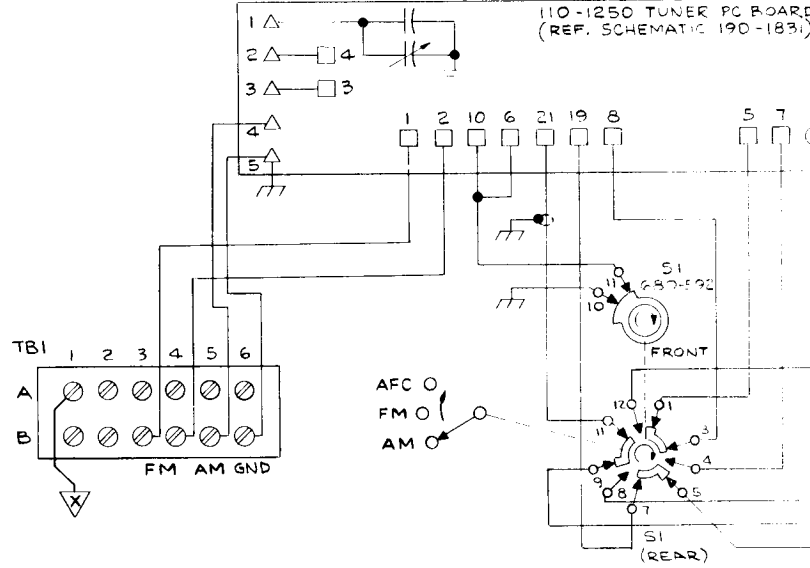 110-1250 TUNER PC BOARD
(REF. SCHEMATIC 190-1831)
1
2 4
3 3
4
5
1 2 10 6 21 19 8 5 7
S1
680-592
11
10
FRONT
TB1 1 2 3 4 5 6
A
B
FM AM GND
X
AFC
FM
AM
12 1
11 3
9 4
8 5
7
S1
(REAR)